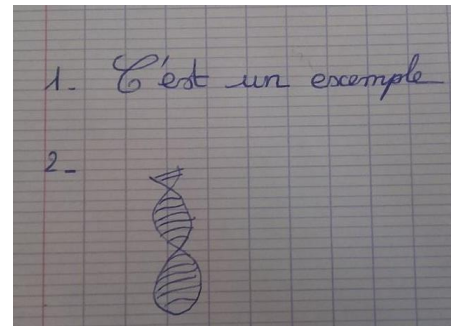 1- C'est un exemple
2-